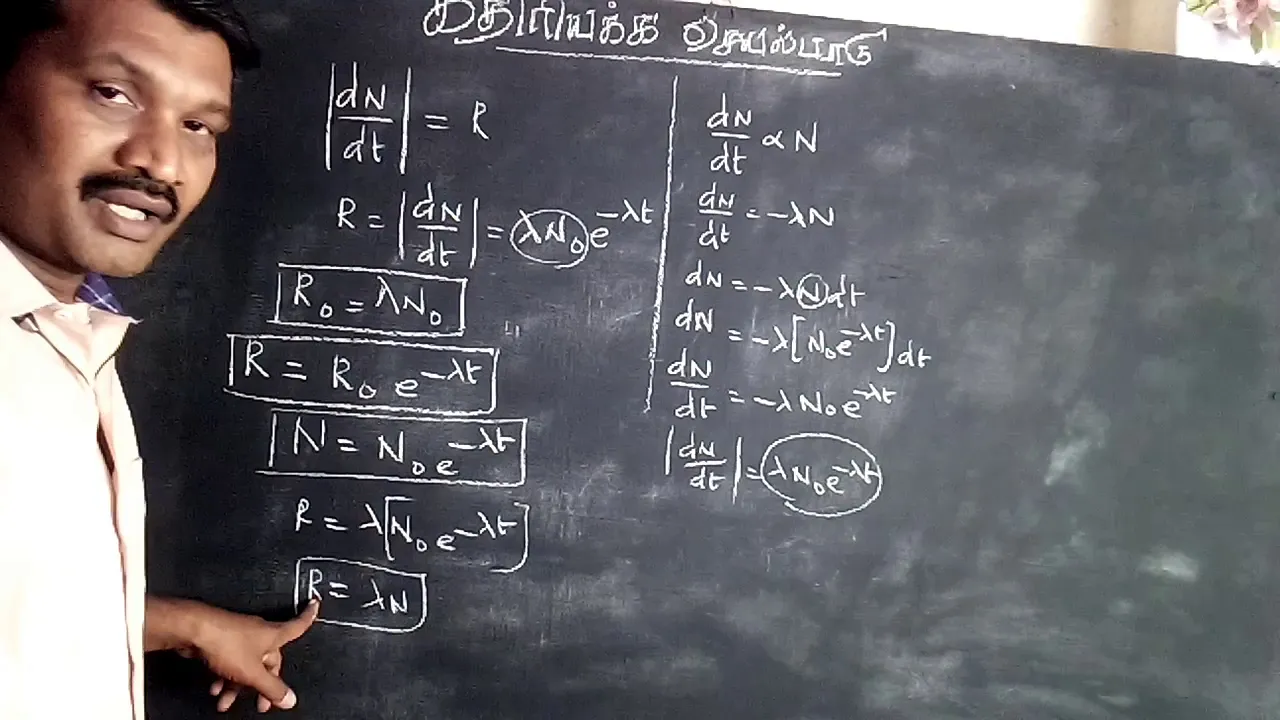 கதிரியக்க செயல்பாடு
|dN/dt| = R
R = |dN/dt| = λN₀e^−λt
R₀ = λN₀
R = R₀ e^−λt
N = N₀ e^−λt
R = λ[N₀ e^−λt]
R = λN
dN/dt ∝ N
dN/dt = −λN
dN = −λNdt
dN = −λ[N₀e^−λt]dt
dN/dt = −λN₀e^−λt
|dN/dt| = λN₀e^−λt